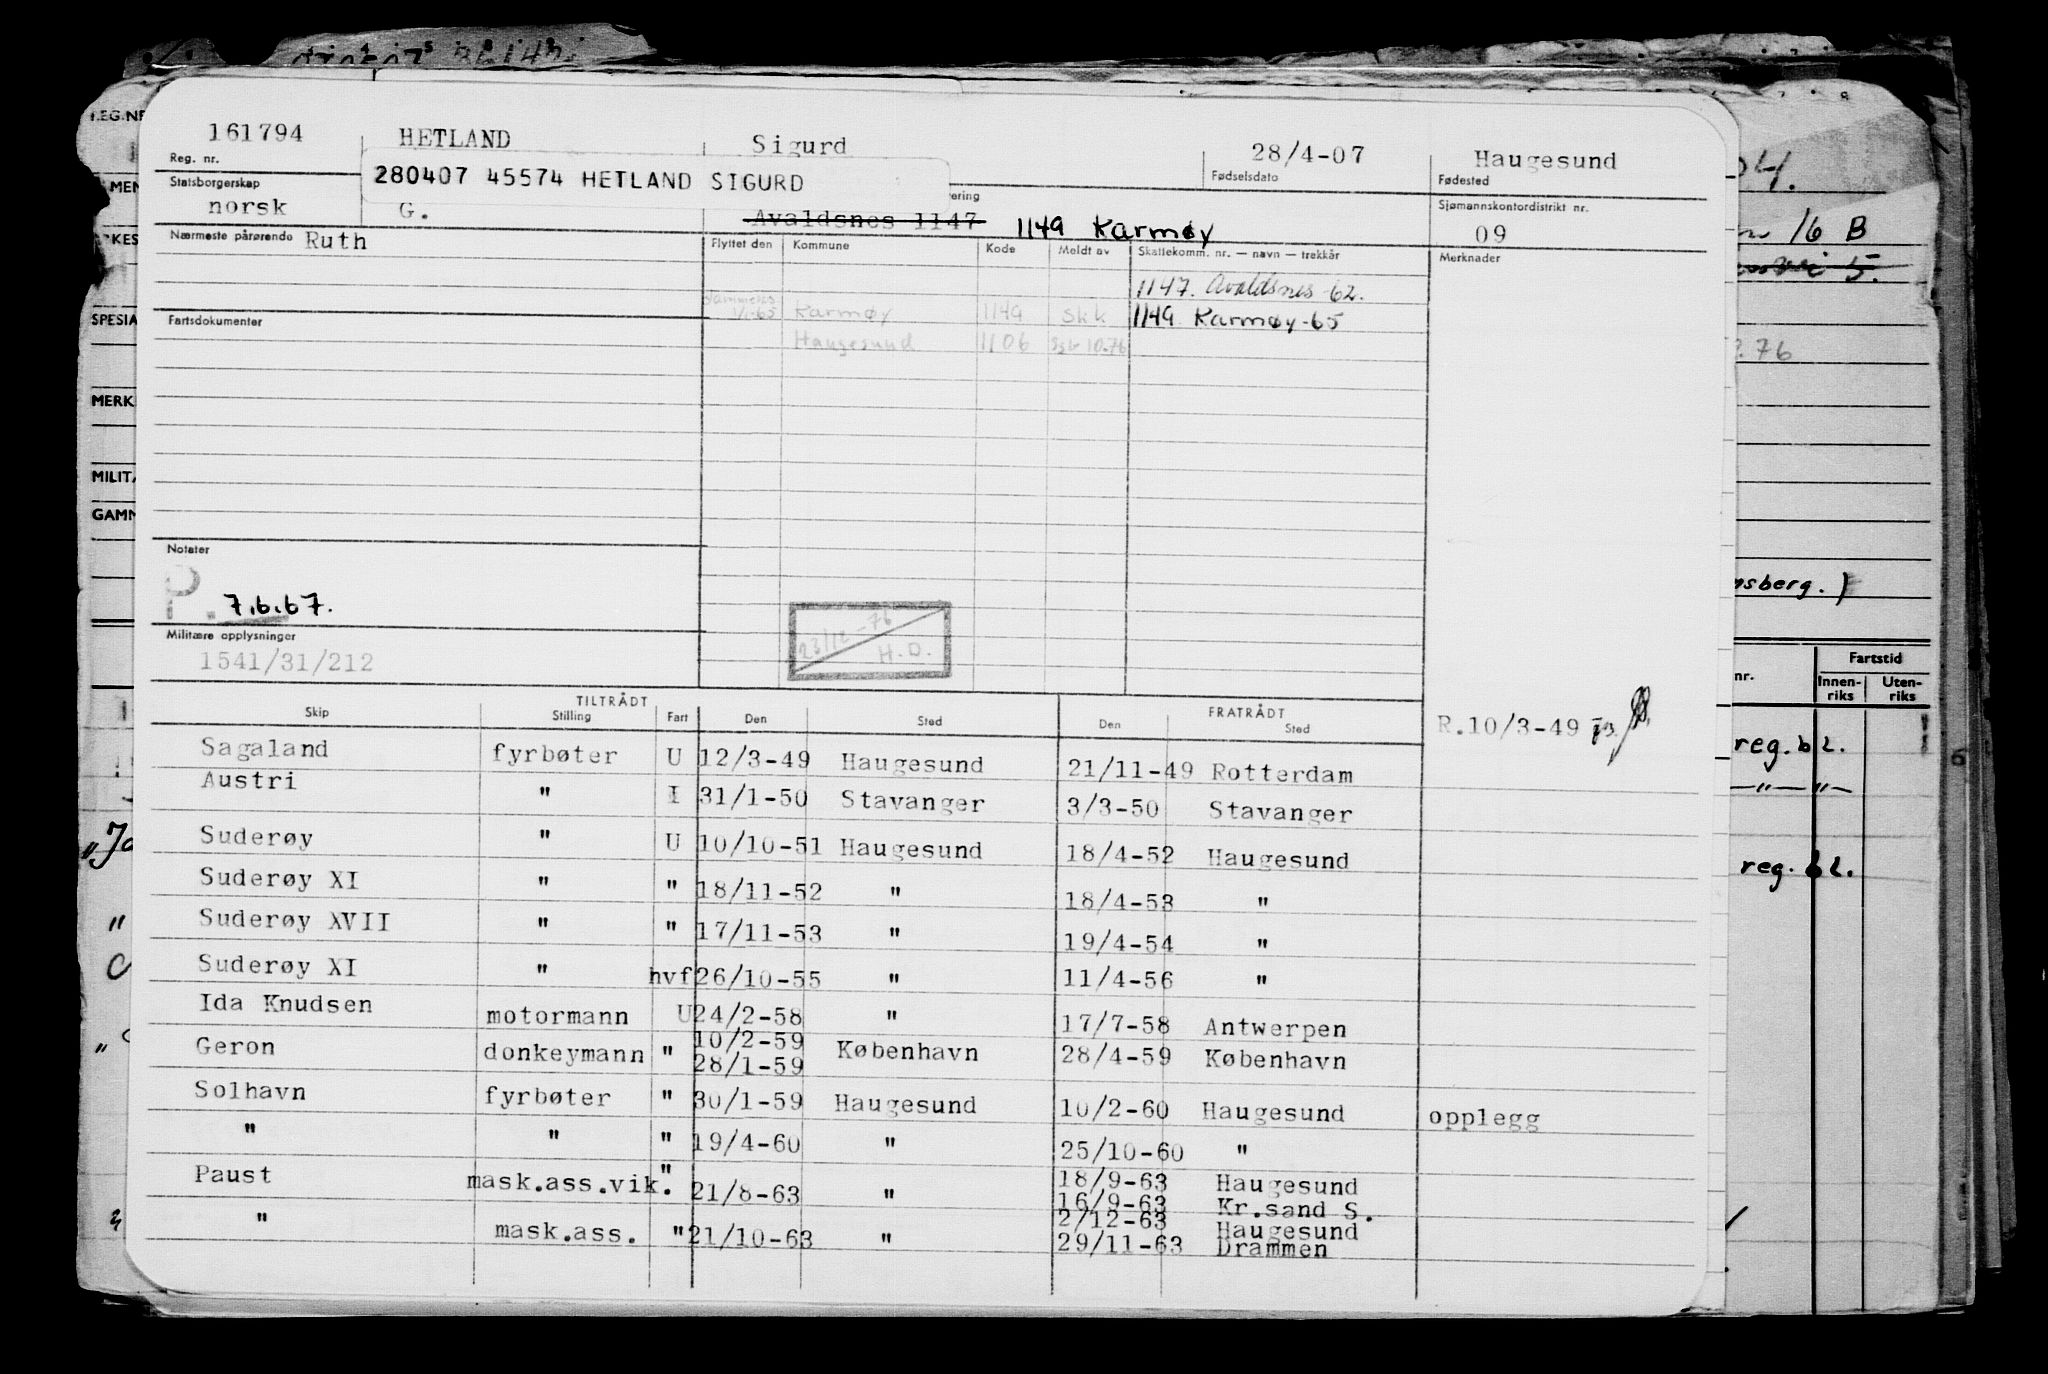 161794 HETLAND Sigurd 28/4-07 Haugesund
Reg. nr. Fødselsdato Fødested
280407 45574 HETLAND SIGURD
Statsborgerskap Sjømannskontordistrikt nr.
norsk G. Avaldsnes 1147 1149 Karmøy 09
Nærmeste pårørende Ruth Flyttet den Kommune Kode Meldt av Skattekomm. nr. — navn — trekkår Merknader
1147. Avaldsnes-62.
1/1-65 Karmøy 1149 Skk 1149 Karmøy-65
Fartsdokumenter
Haugesund 1106 10.76
Notater
P. 7.6.67.
23/12-76 H.O.
Militære opplysninger
1541/31/212
TILTRÅDT FRATRÅDT
Skip Stilling Fart Den Sted Den Sted
R.10/3-49
Sagaland fyrbøter U 12/3-49 Haugesund 21/11-49 Rotterdam
Austri " I 31/1-50 Stavanger 3/3-50 Stavanger
Suderøy " U 10/10-51 Haugesund 18/4-52 Haugesund
Suderøy XI " " 18/11-52 " 18/4-53 "
Suderøy XVII " " 17/11-53 " 19/4-54 "
Suderøy XI " hvf 26/10-55 " 11/4-56 "
Ida Knudsen motormann U 24/2-58 " 17/7-58 Antwerpen
10/2-59
Geron donkeymann " 28/1-59 København 28/4-59 København
Solhavn fyrbøter " 30/1-59 Haugesund 10/2-60 Haugesund opplegg
" " " 19/4-60 " 25/10-60 "
18/9-63 Haugesund
Paust mask.ass.vik. " 21/8-63 " 16/9-63 Kr.sand S.
2/12-63 Haugesund
" mask.ass. " 21/10-63 " 29/11-63 Drammen
04.
16 B
5.
76
MERK
GAMM
nsberg.)
nr. Fartstid
Innenriks Utenriks
reg. 62.
—"—"—
reg. 62.